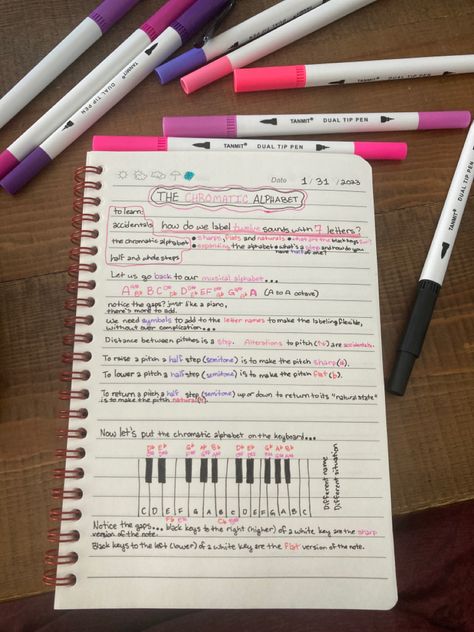 TANMIT DUAL TIP PEN
TANMIT DUAL TIP PEN
TANMIT DUAL TIP PEN
TANMIT DUAL TIP PEN
Date 1/31/2023
THE CHROMATIC ALPHABET
to learn:
accidentals
the chromatic alphabet
half and whole steps
how do we label twelve sounds with 7 letters?
• sharps, flats and naturals • what are the black keys for?
• expanding the alphabet • what's a step and how do you have half of one?
Let us go back to our musical alphabet...
(A to A octave)
notice the gaps? just like a piano,
there's more to add.
We need symbols to add to the letter names to make the labeling flexible,
without over complication...
Distance between pitches is a step. Alterations to pitch are accidentals.
To raise a pitch a half step (semitone) is to make the pitch sharp (#).
To lower a pitch a half step (semitone) is to make the pitch flat (b).
To return a pitch a half step (semitone) up or down to return to its "natural state"
is to make the pitch natural
Now let's put the chromatic alphabet on the keyboard...
Db Eb Gb Ab Bb Db Eb Gb Ab Bb
C D E F G A B C D E F G A B C
Different name
Different situation
Notice the gaps... black keys to the right (higher) of a white key are the sharp
version of the note.
Black keys to the left (lower) of a white key are the flat version of the note.